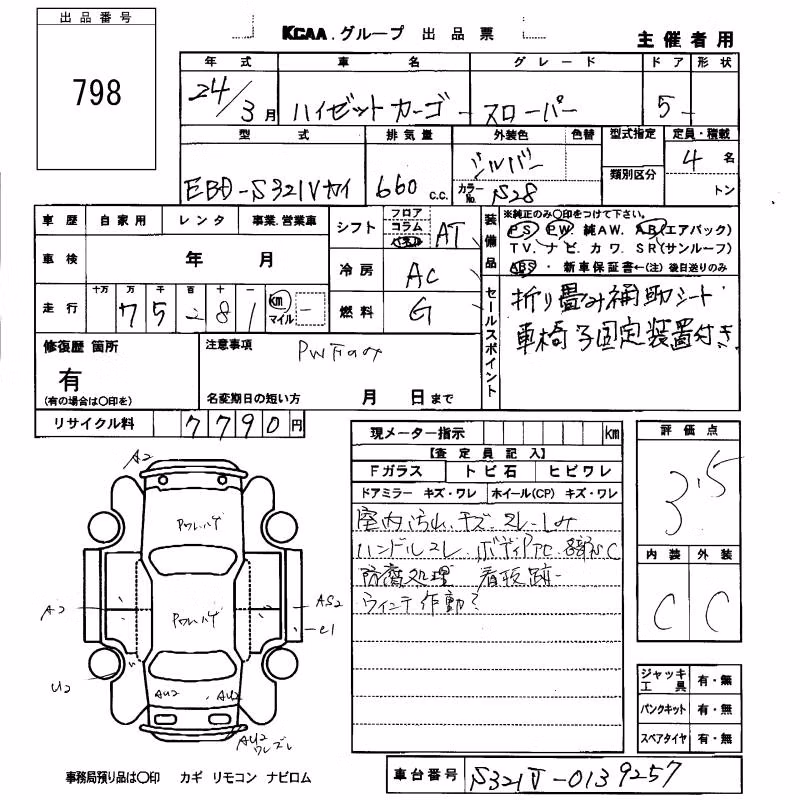 出品番号
798
KCAA.グループ 出品票
主催者用
年式 車名 グレード ドア 形状
24/3月 ハイゼットカーゴ スローパー 5 -
型式 排気量 外装色 色替 型式指定 定員・積載
EBD-S321Vカイ 660 c.c. シルバー カラーNo. S28 類別区分 4名 トン
車歴 自家用 レンタ 事業.営業車
車検 年 月
走行 十万 万 千 百 十 一
75281 km マイル -
シフト フロア コラム AT
冷房 AC
燃料 G
装備品
※純正のみ〇印をつけて下さい。
PS PW 純AW. AB(エアバック)
TV. ナビ. カワ. SR(サンルーフ)
ABS・新車保証書←(注)後日送りのみ
セールスポイント
折り畳み補助シート
車椅子固定装置付き
修復歴 箇所
有
(有の場合は〇印を)
注意事項
PW Fのみ
名変期日の短い方 月 日まで
リサイクル料 7790円
現メーター指示 km
【査定員記入】
Fガラス トビ石 ヒビワレ
ドアミラー キズ・ワレ ホイール(CP) キズ・ワレ
室内汚れ.キズ.スレ.シミ
ハンドルスレ.
防腐処理 看板跡
ウィンチ作動?
評価点
3.5
内装 外装
C C
ジャッキ工具 有・無
パンクキット 有・無
スペアタイヤ 有・無
A2
A2
U2
AS2
C1
AU2 AU2
AU2
車台番号 S321V-0139257
事務局預り品は〇印 カギ リモコン ナビロム